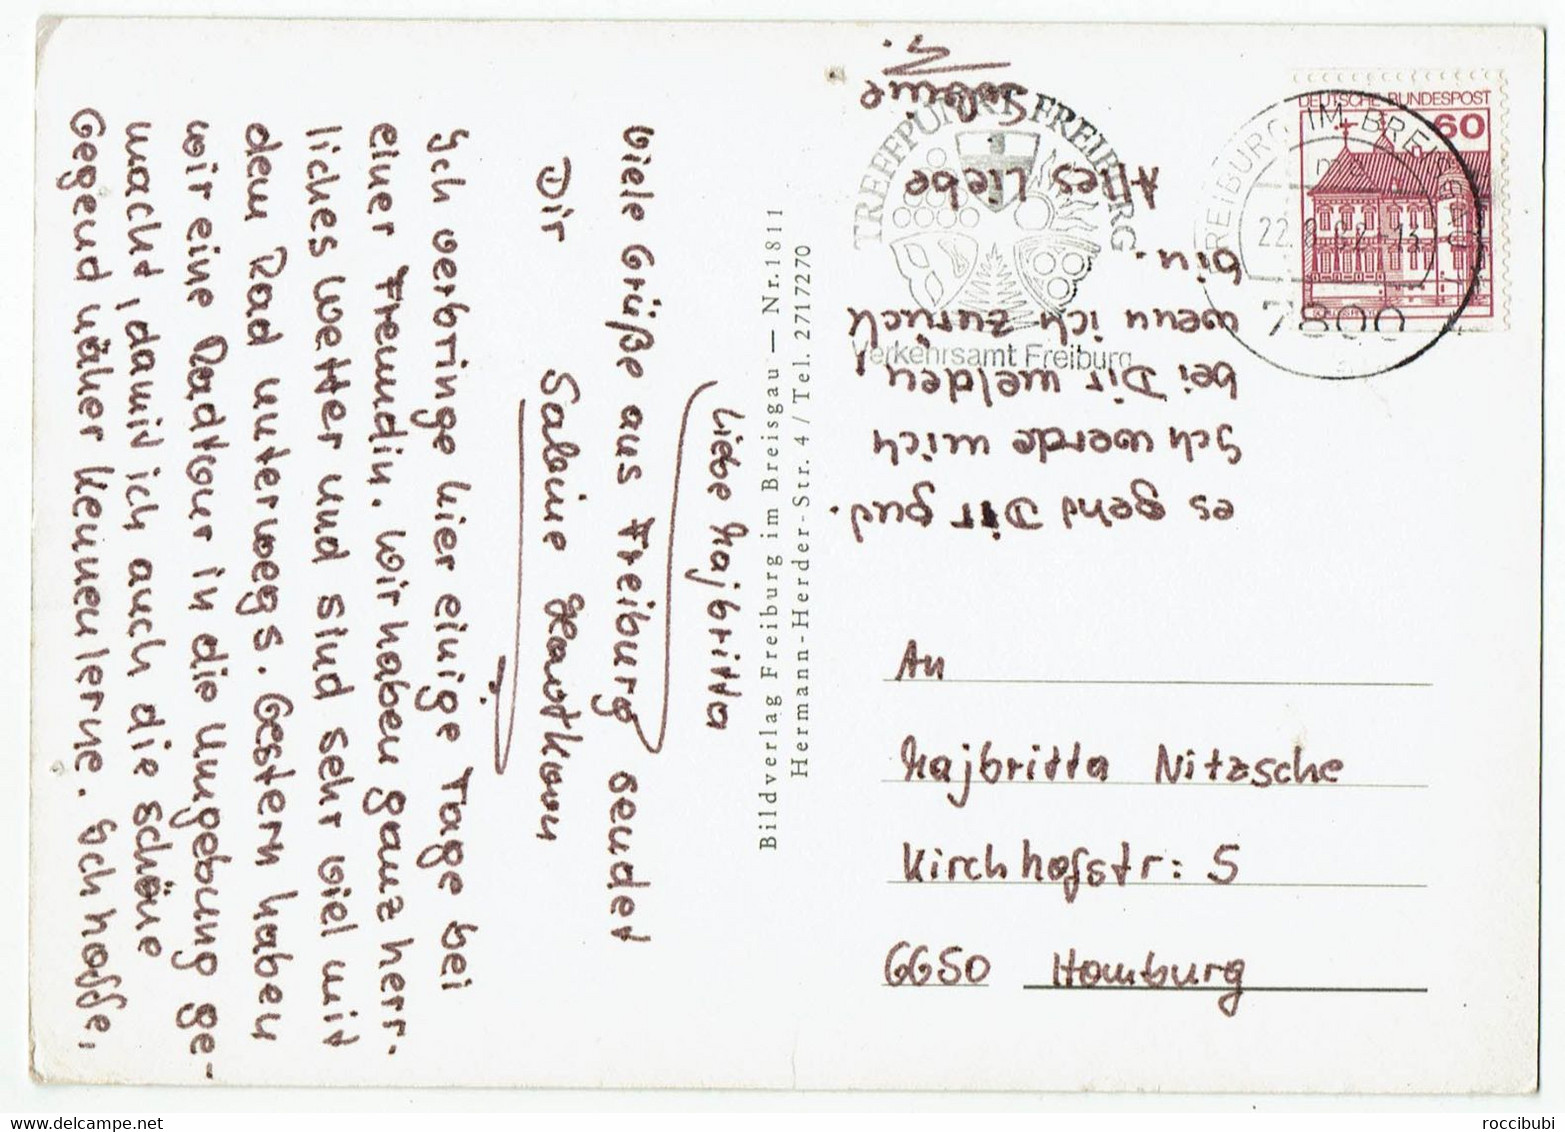 Liebe Majbritta
Viele Grüße aus Freiburg sendet
Dir Sabine
Ich verbringe hier einige Tage bei
einer Freundin. Wir haben ganz herr-
liches Wetter und sind sehr viel mit
dem Rad unterwegs. Gestern haben
wir eine Radtour in die Umgebung ge-
macht, damit ich auch die schöne
Gegend näher kennenlerne. Ich hoffe,
es geht Dir gut.
Ich werde mich
bei Dir melden,
wenn ich zurück
bin.
Alles Liebe
Sabine
Bildverlag Freiburg im Breisgau — Nr. 1811
Hermann-Herder-Str. 4 / Tel. 2717270
TREFFPUNKT FREIBURG
Verkehrsamt Freiburg
DEUTSCHE BUNDESPOST
60
FREIBURG IM BREISGAU
7800
An
Majbritta Nitzsche
Kirchhofstr: 5
6650 Homburg
roccibubi